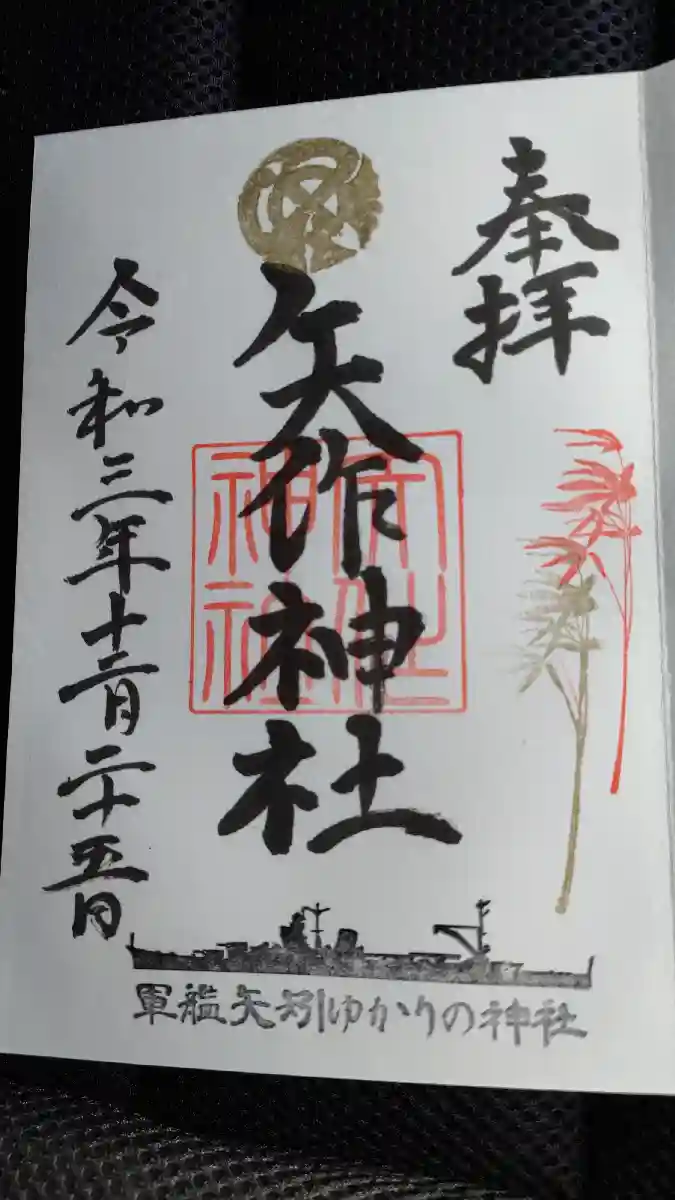 奉拝
矢作神社
矢作神社
令和三年十二月二十五日
軍艦矢矧ゆかりの神社